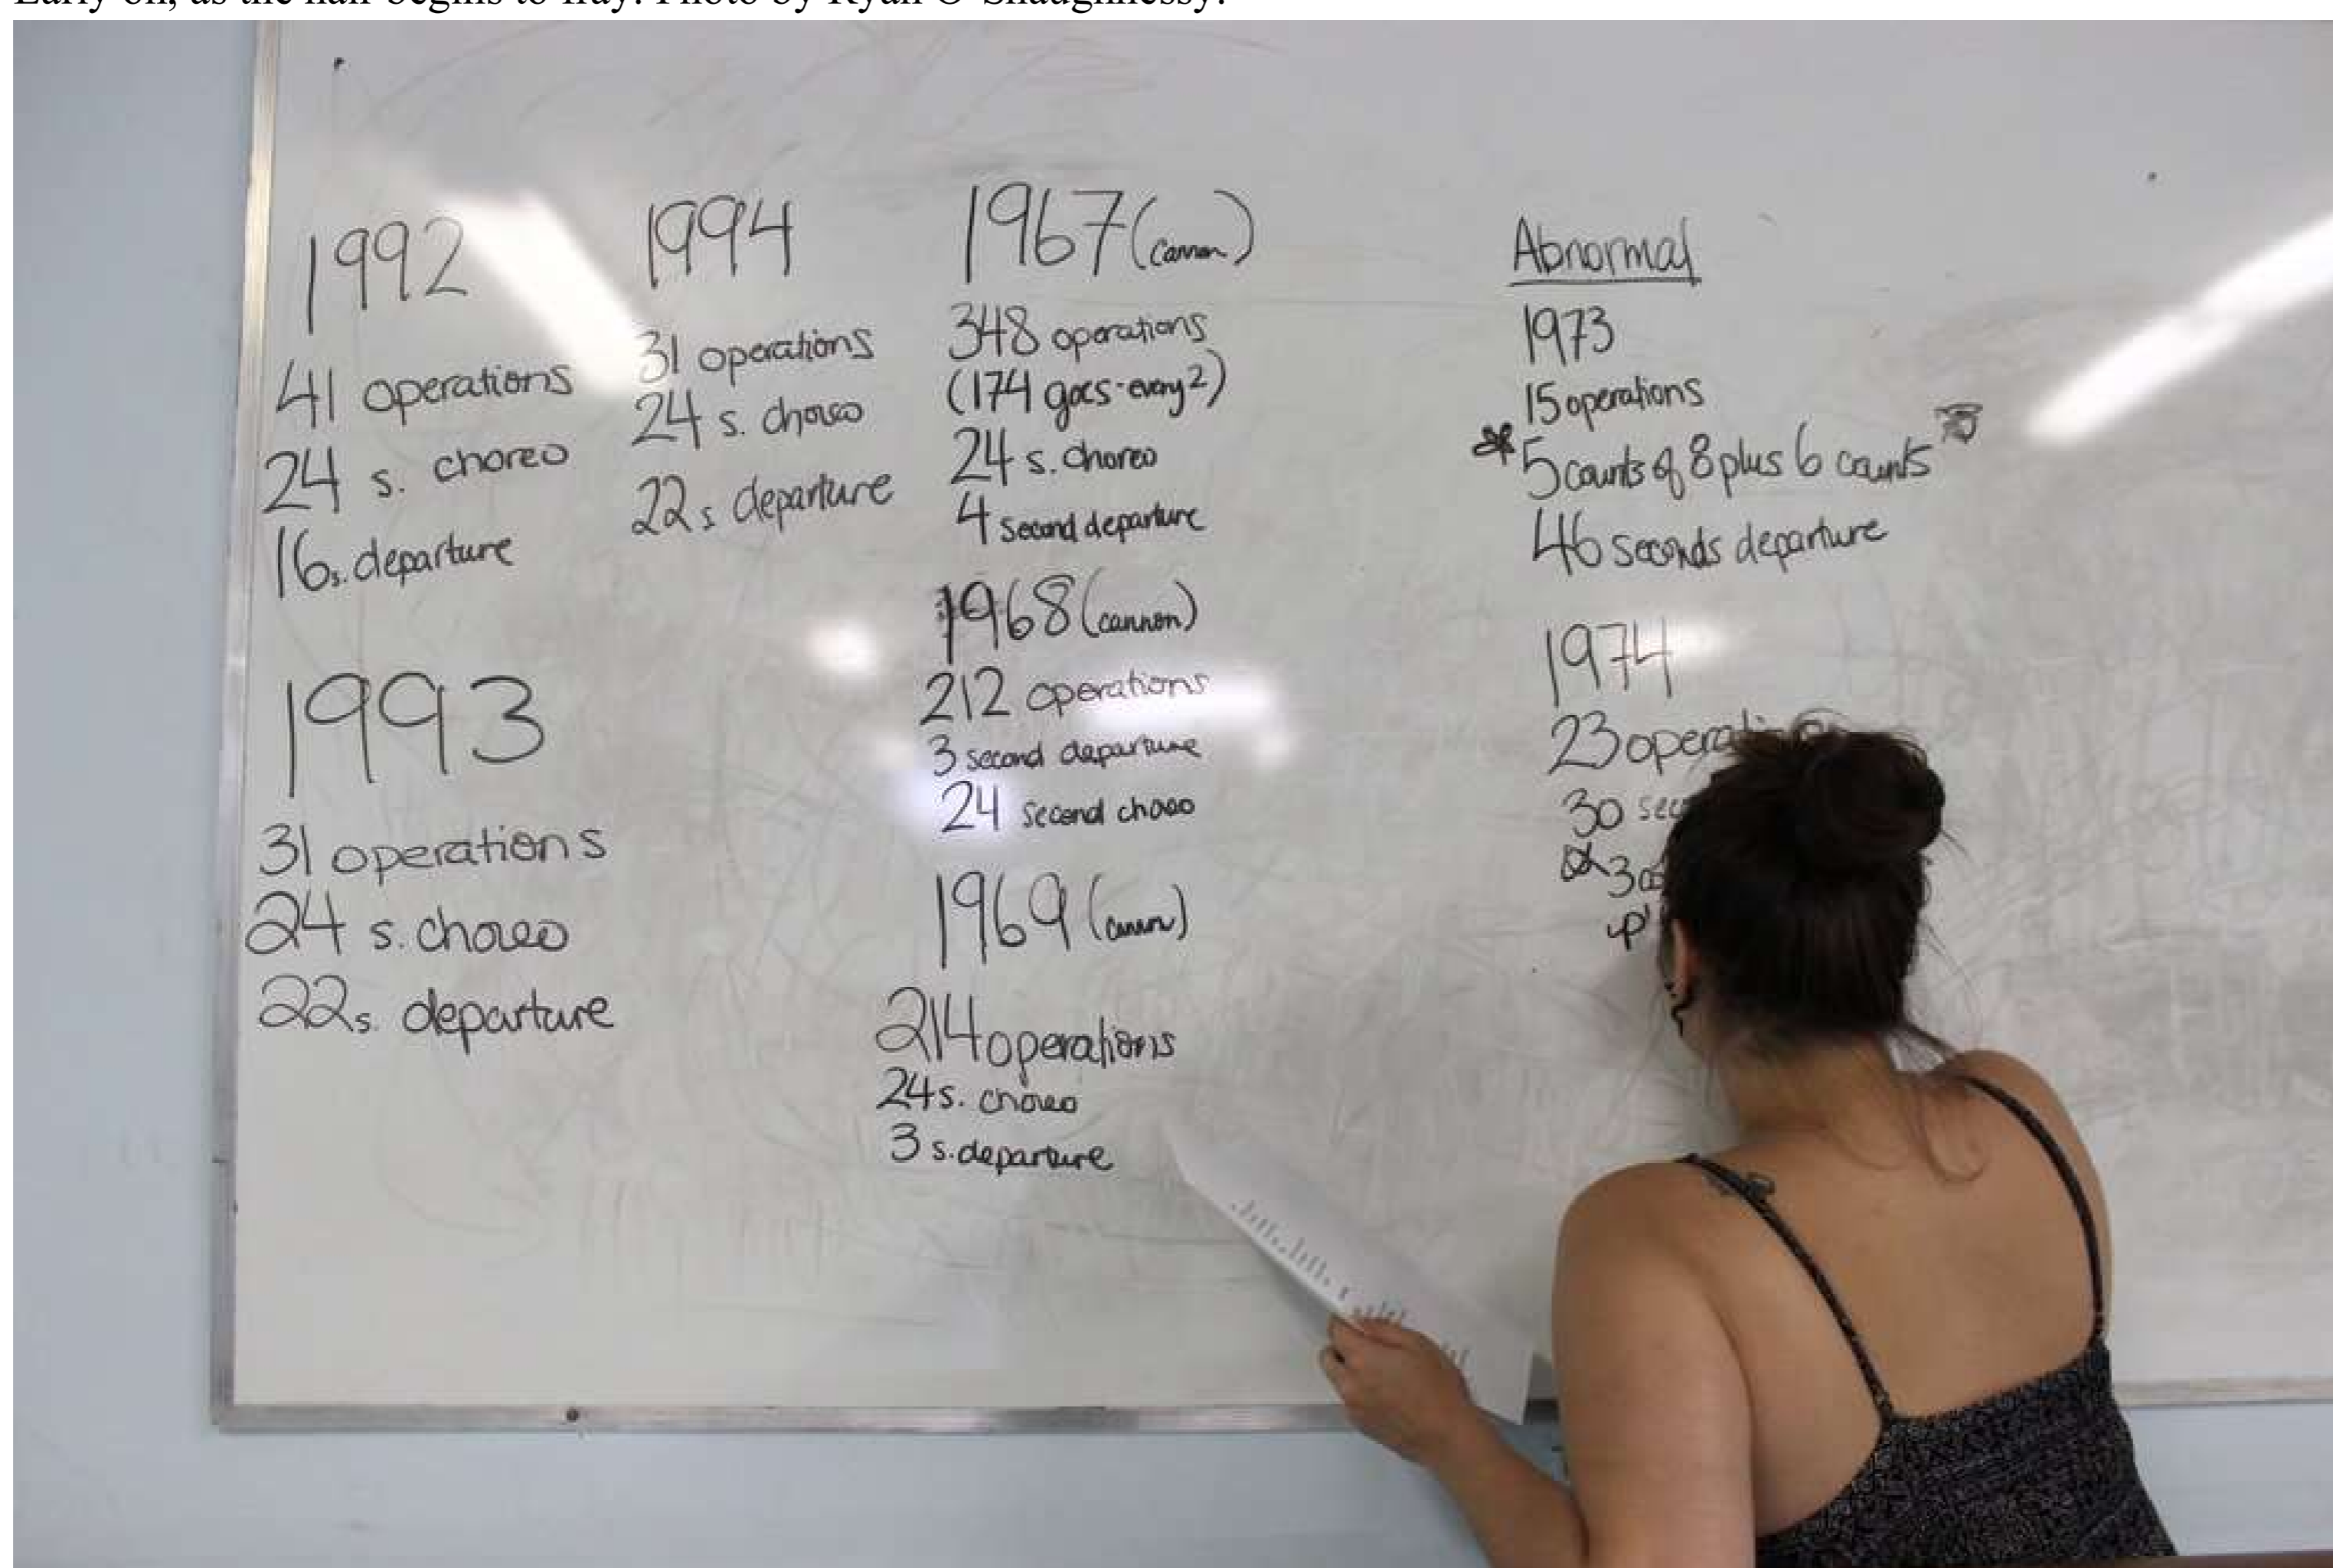 1992
41 operations
24 s. choreo
16s. departure
1993
31 operations
24 s. choreo
22s. departure
1994
31 operations
24 s. choreo
22s departure
1967 (cannon)
348 operations
(174 goes-every 2)
24 s. choreo
4 second departure
1968 (cannon)
212 operations
3 second departure
24 second choreo
1969 (cannon)
214 operations
24s. choreo
3 s. departure
Abnormal
1973
15 operations
* 5 counts of 8 plus 6 counts
46 seconds departure
1974
23 operations
30